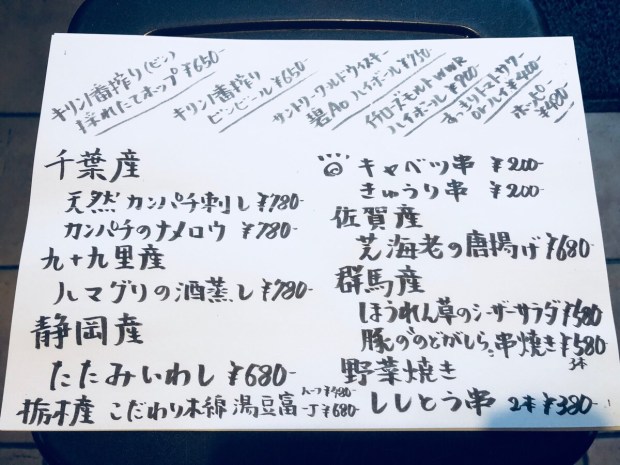 キリン一番搾り(ビン)
採れたてホップ ¥650-
キリン一番搾り
ビンビール ¥650-
サントリーワールドウイスキー
碧Ao ハイボール ¥750-
イチローズモルト WWR
ハイボール ¥900-
すっきりトマトサワー
orハイ ¥400-
ホッピー
¥490-
千葉産
天然 カンパチ刺し ¥780-
カンパチのナメロウ ¥780-
九十九里産
ハマグリの酒蒸し ¥780-
静岡産
たたみいわし ¥680-
栃木産 こだわり木綿 湯豆富
ハーフ ¥480-
一丁 ¥680-
キャベツ串 ¥200-
きゅうり串 ¥200-
佐賀産
芝海老の唐揚げ ¥680-
群馬産
ほうれん草のシーザーサラダ ¥580
豚の"のどがしら"串焼き ¥580
3本
野菜焼き
ししとう串 2本 ¥380-